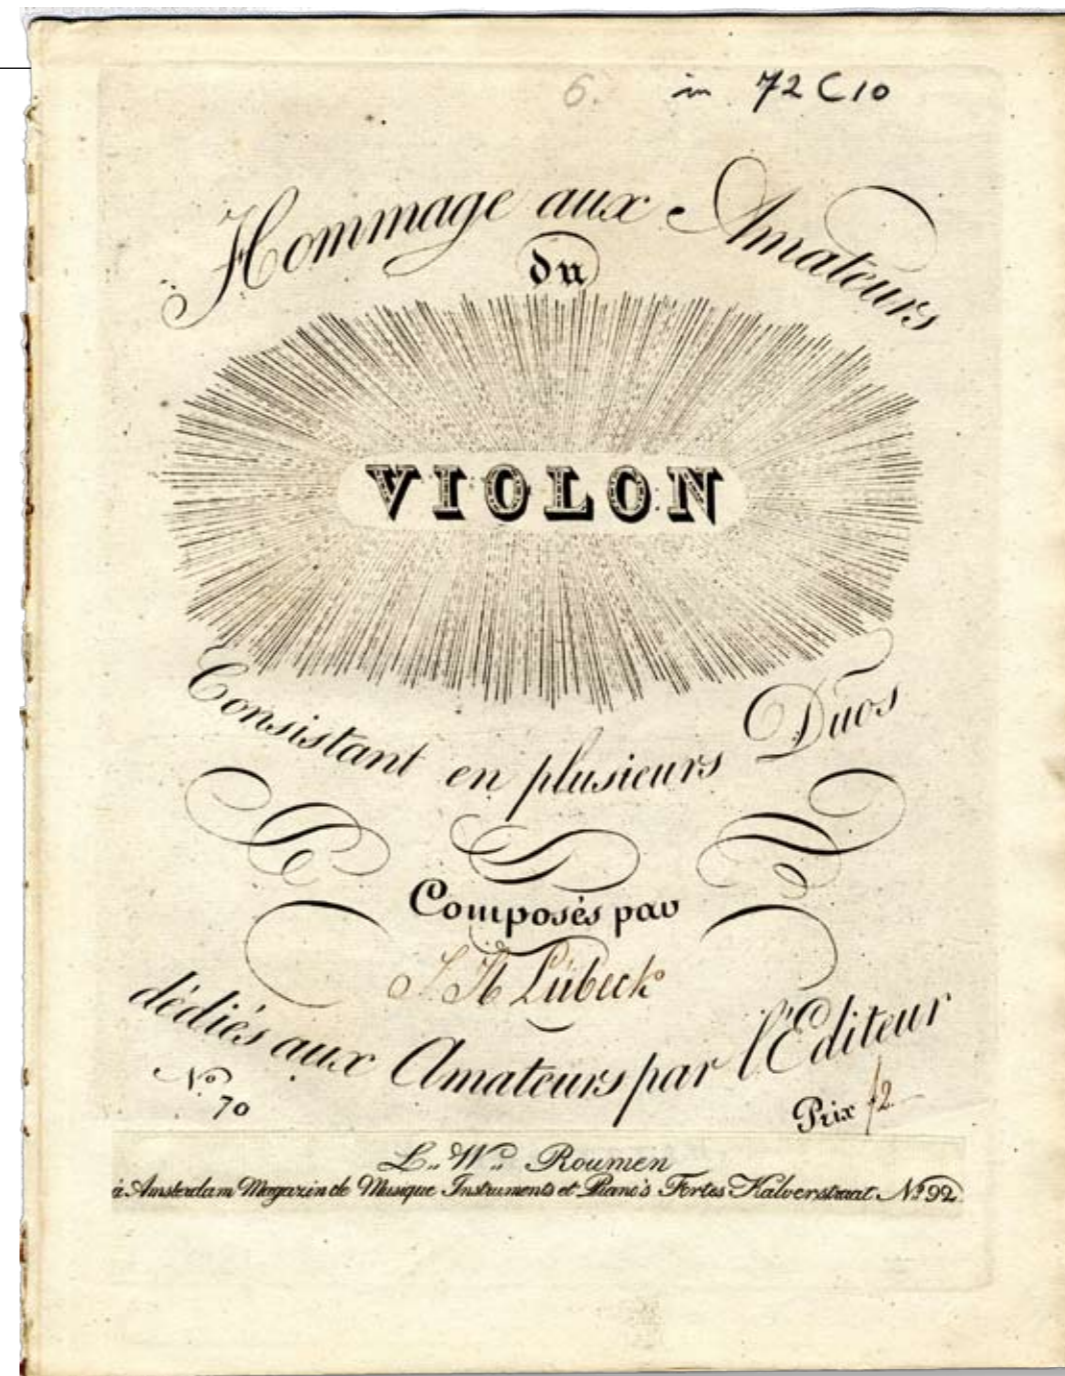 6. in 72 C 10
Hommage aux Amateurs
du
VIOLON
Consistant en plusieurs Duos
Composés par
J. H. Lübeck
dédiés aux Amateurs par l'Editeur
No. 70
Prix f2.
L. Wm. Roumen
à Amsterdam Magazin de Musique Instruments et Piano's Fortes Kalverstraat No. 92